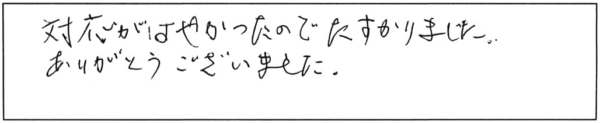 対応がはやかったのでたすかりました。
ありがとうございました。